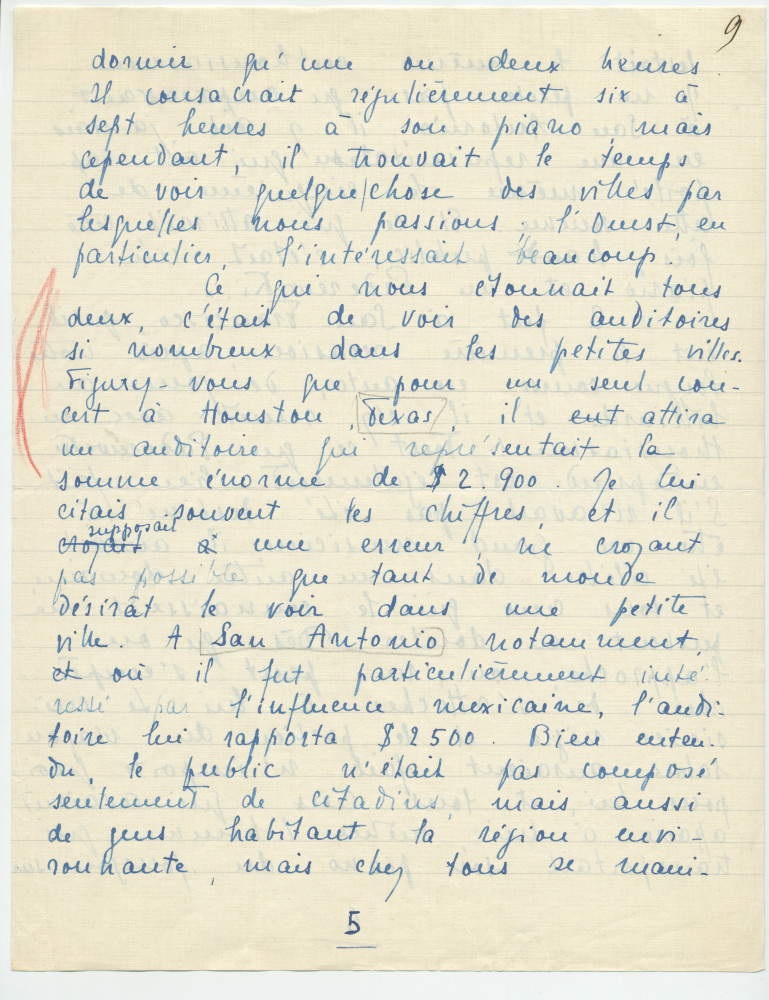 9
dormir qu'une ou deux heures.
Il consacrait régulièrement six à
sept heures à son piano, mais
cependant, il trouvait le temps
de voir quelque chose des villes par
lesquelles nous passions ; l'Ouest, en
particulier, l'intéressait beaucoup.
Ce qui nous étonnait tous
deux, c'était de voir des auditoires
si nombreux dans les petites villes.
Figurez-vous que pour un seul con-
cert à Houston, Texas, il eut attira
un auditoire qui représentait la
somme énorme de $ 2.900. Je lui
citais souvent les chiffres, et il
supposait
croyait à une erreur, ne croyant
pas possible que tant de monde
désirât le voir dans une petite
ville. A San Antonio notamment,
et où il fut particulièrement inté-
ressé par l'influence mexicaine, l'audi-
toire lui rapporta $ 2500. Bien enten-
du, le public n'était pas composé
seulement de citadins, mais aussi
de gens habitant la région envi-
ronnante, mais chez tous se mani-
5